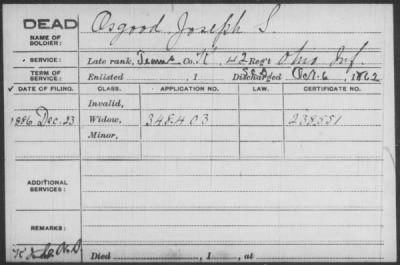 DEAD
NAME OF SOLDIER: Osgood, Joseph S.
SERVICE: Late rank, Co. K, 42 Reg't Ohio Inf.
TERM OF SERVICE: Enlisted , 1 Discharged Oct. 6, 1862
DATE OF FILING. CLASS. APPLICATION NO. LAW. CERTIFICATE NO.
Invalid,
1886 Dec. 23 Widow, 348403 238551
Minor,
ADDITIONAL SERVICES:
REMARKS:
Died , 1 , at